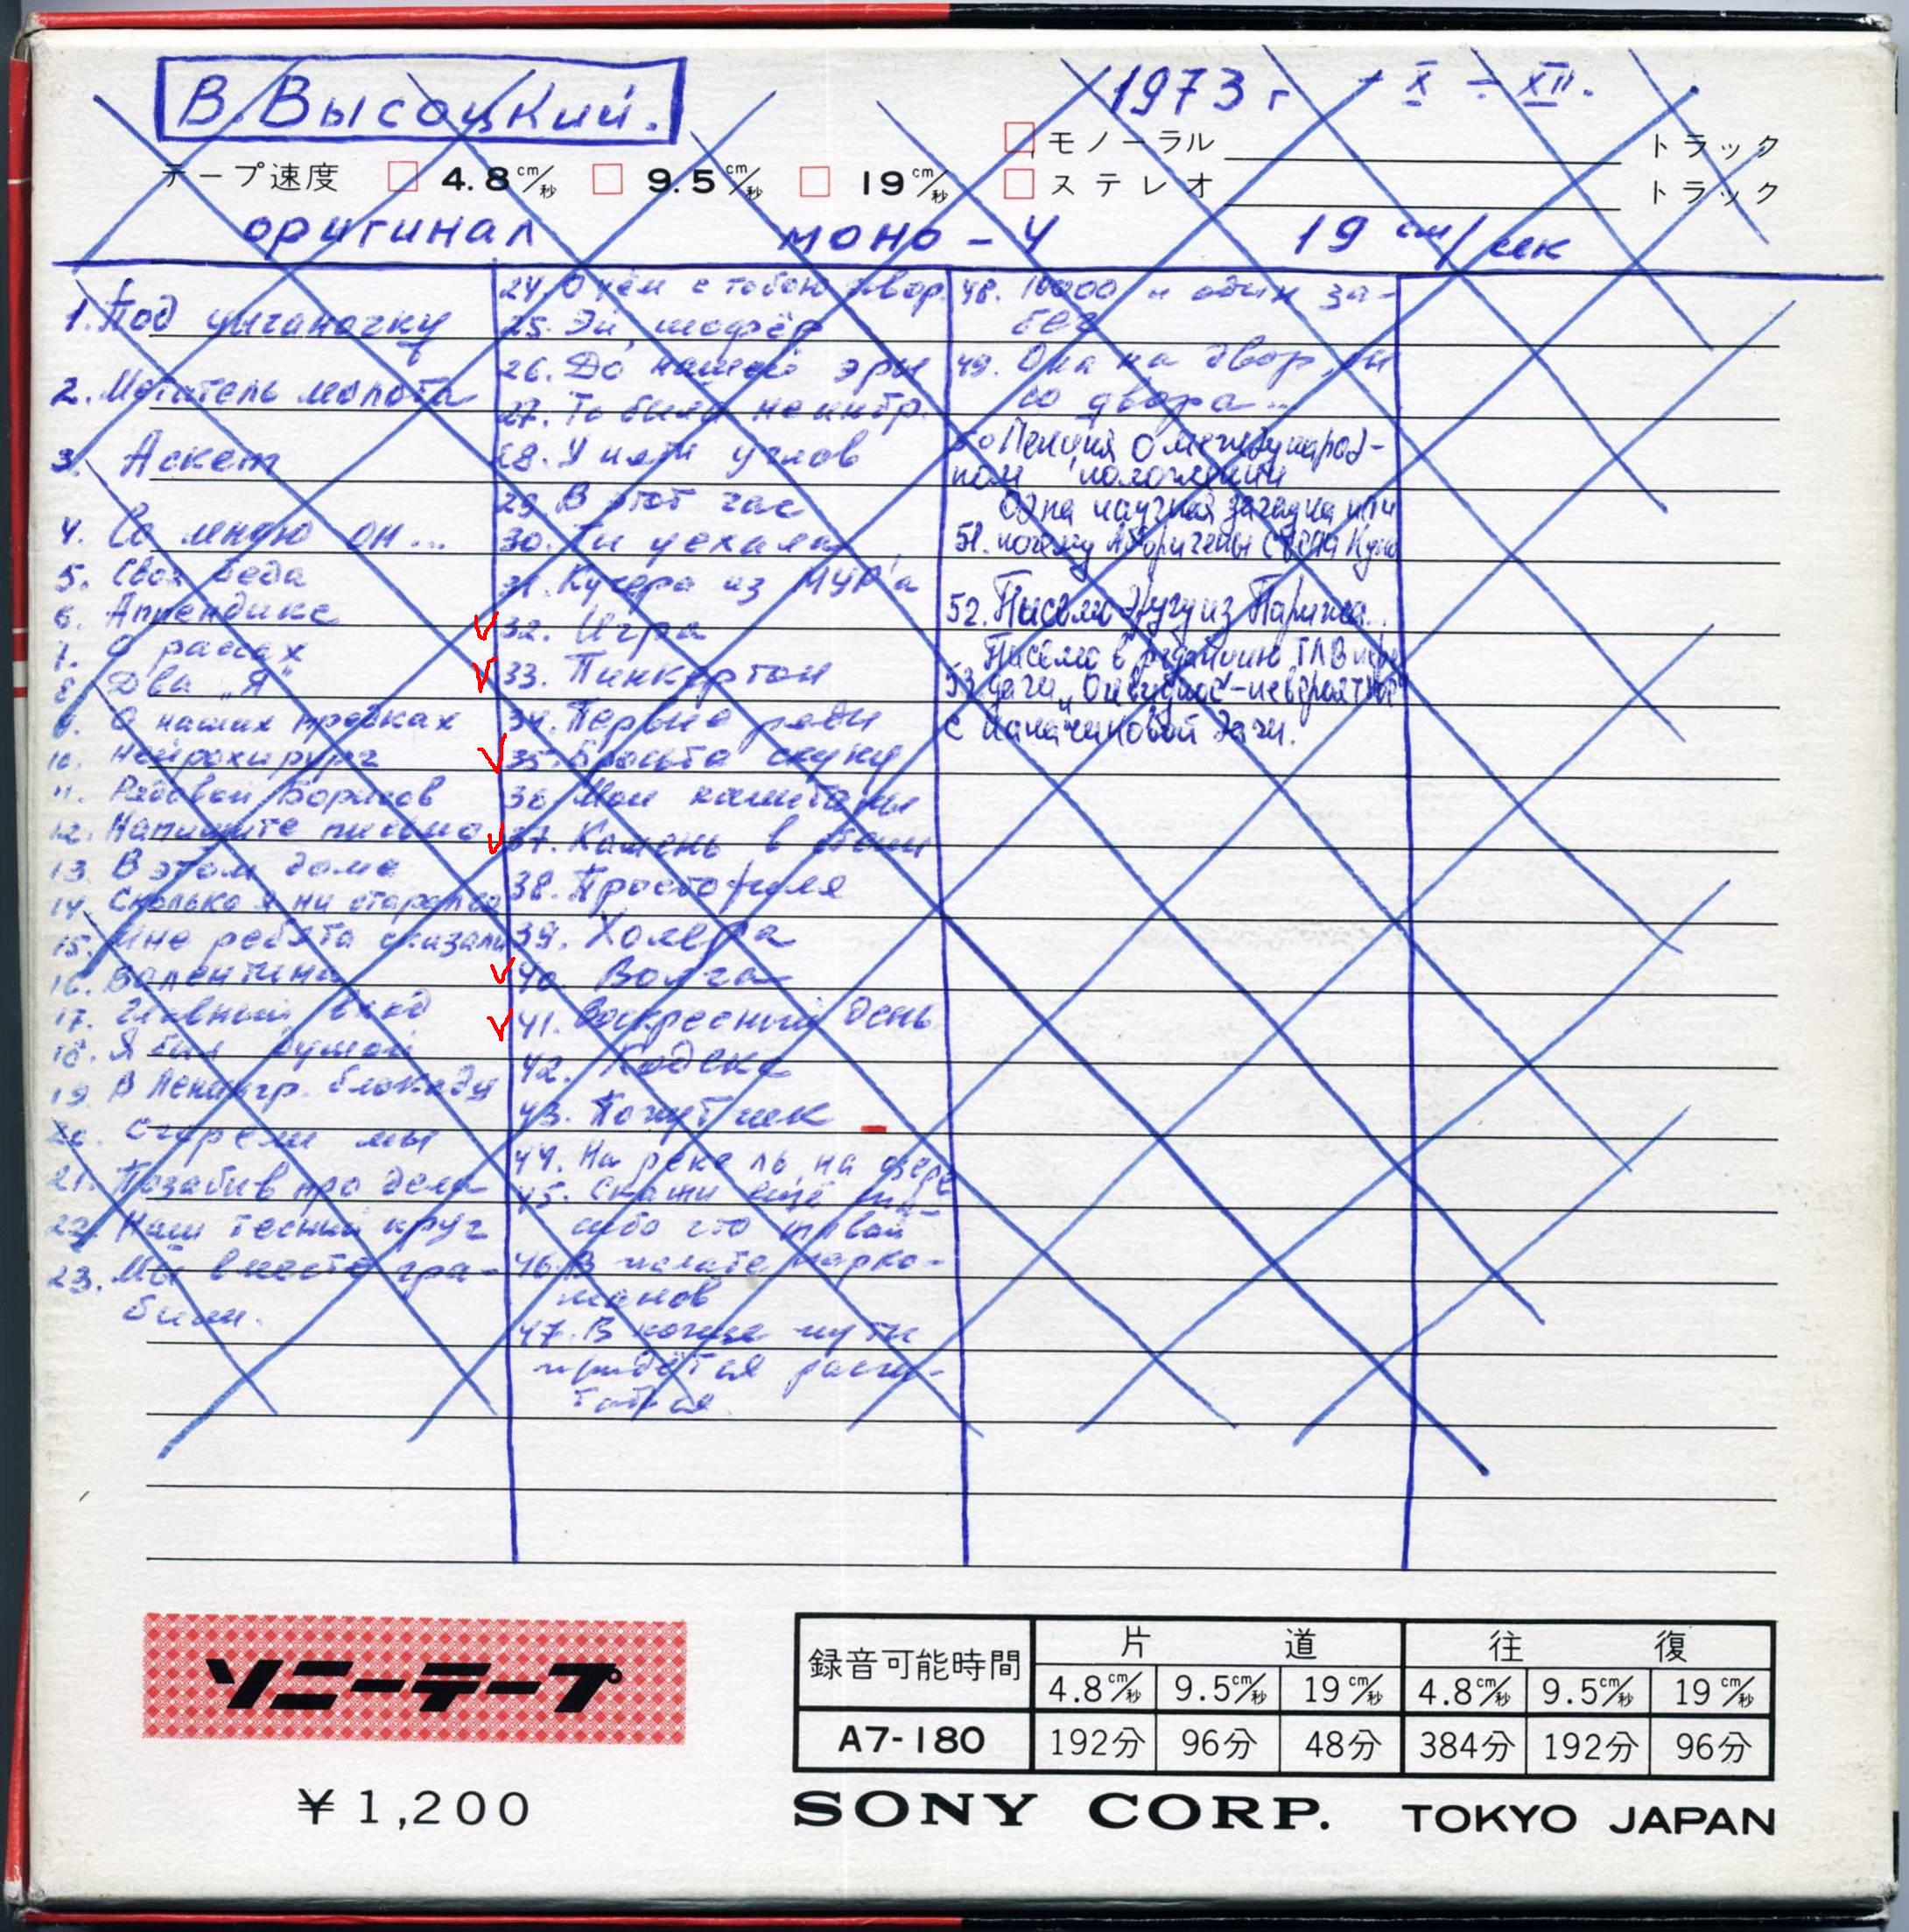 В. Высоцкий.
1973 г - X ÷ XII.
モノーラル トラック
テープ速度 4.8cm/秒 9.5cm/秒 19cm/秒
ステレオ トラック
оригинал моно - 4 19 см/сек
1. Под цыганочку
2. Метатель молота
3. Аскет
4. Со мною он...
5. Своя беда
6. Аппендикс
7. О расах
8. Два "Я"
9. О наших тройках
10. Нейрохирург
11. Рядовой Борисов
12. Напишите письмо
13. В этом доме
14. Сколько я ни старался
15. Мне ребята сказали
16. Валентина
17. Главный вход
18. Я был душой
19. В Ленингр. блокаду
20. Сгорели мы
21. Позабыв про дела
22. Наш тесный круг
23. Мы вместе гра-
били.
24. О чём с тобою говор.
25. Эй, шофёр
26. До нашей эры
27. То была не интр.
28. У пяти углов
29. В этот час
30. Ты уехала
31. Кучера из МУР'а
32. Игра
33. Пинкертон
34. Первые ряды
35. Бросьте скуку
36. Мои капитаны
37. Камень в
38. Простофиля
39. Холера
40. Волга
41. Воскресный день
42. Кодекс
43. Попутчик
44. На реке ль, на озере
45. Скажи ещё спа-
сибо что живой
46. В палате нарко-
манов
47. В конце пути
придётся рассчи-
таться
48. 10000 и один за-
бег
49. Она на двор, он
со двора...
50 Лекция о международ-
ном положении
Одна научная загадка или
51. почему Аборигены съели Кука
52. Письмо другу из Парижа..
Письмо в редакцию ТЛВ пере
53. дачи „Очевидное-невероятное"
с Канатчиковой дачи.
ソニーテープ
¥1,200
録音可能時間 片道 往復
4.8cm/秒 9.5cm/秒 19cm/秒 4.8cm/秒 9.5cm/秒 19cm/秒
A7-180 192分 96分 48分 384分 192分 96分
SONY CORP. TOKYO JAPAN